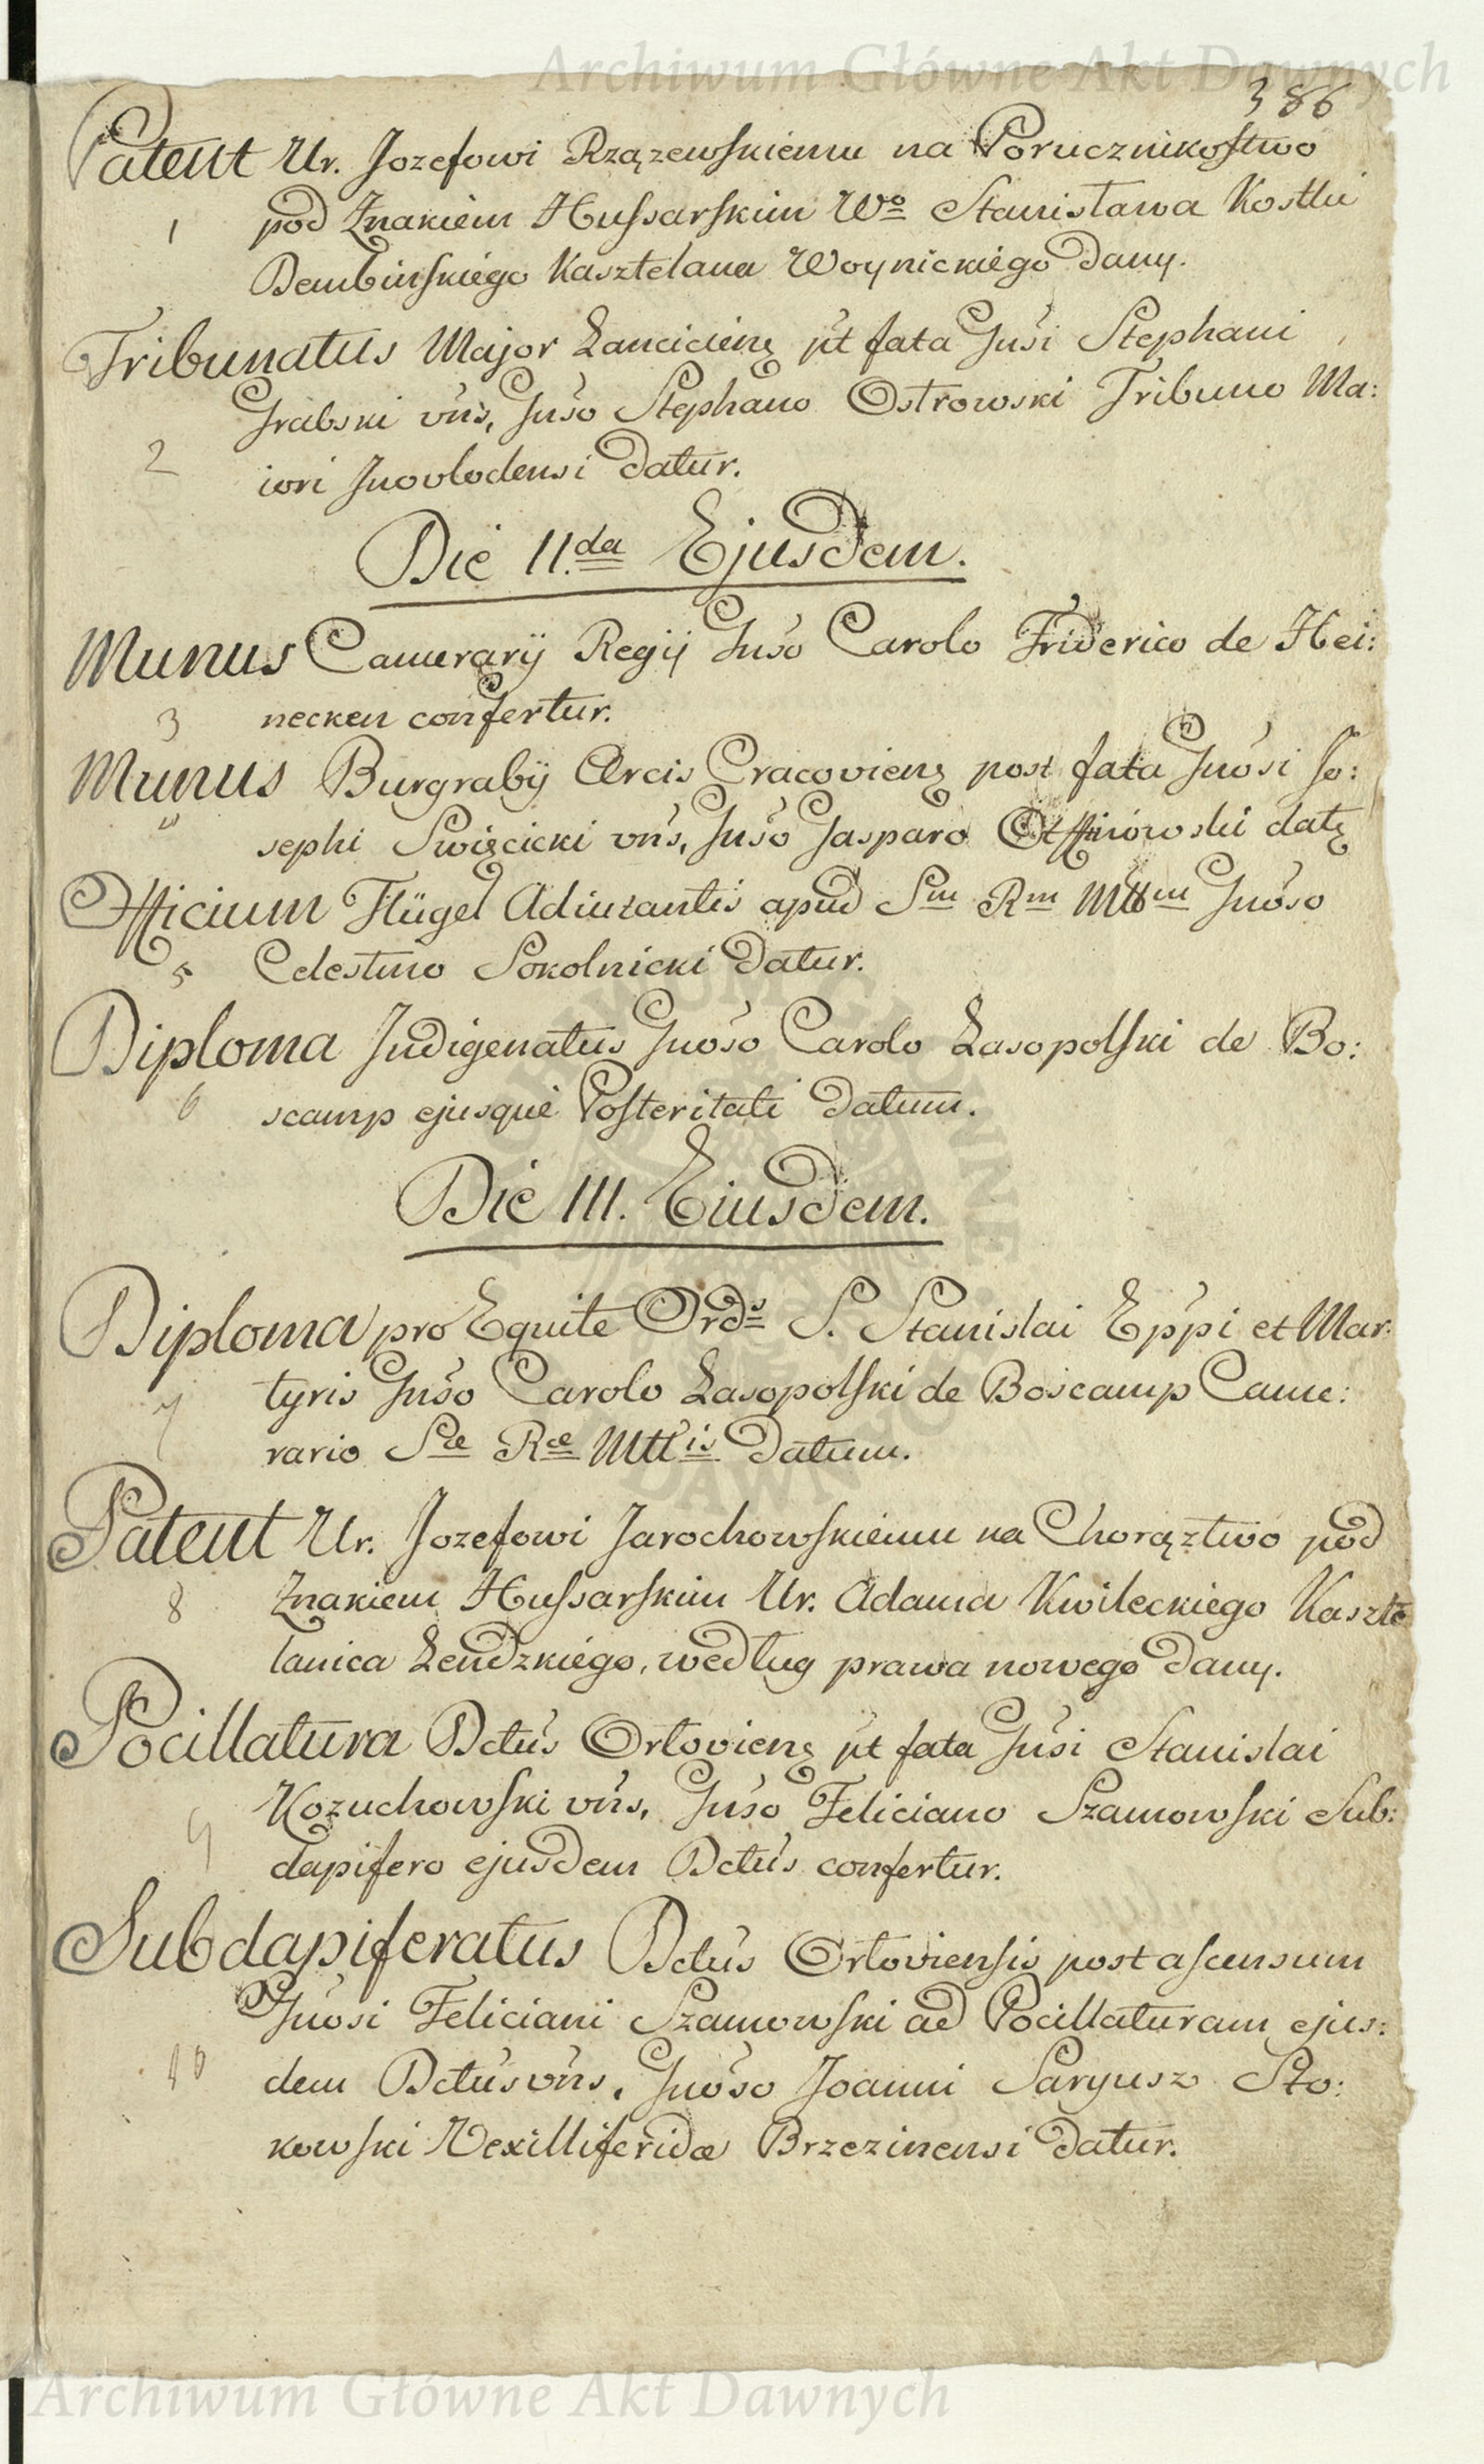 Archiwum Główne Akt Dawnych
386
Patent Ur. Jozefowi Rzązewskiemu na Porucznikostwo
1 pod Znakiem Hussarskim Wo Stanisława Kostki
Dembinskiego Kasztelana Woynickiego dany.
Tribunatus Major Łancicien: pt fata Gnsi Stephani
Grabski vns, Gnso Stephano Ostrowski Tribuno Ma:
2 iori Inovlodensi datur.
Die II.da Ejusdem.
Munus Camerarij Regij Gnso Carolo Friderico de Hei:
3 necken confertur.
Munus Burgrabij Arcis Cracovien: post fata Gnosi Jo:
sephi Swięcicki vns, Gnso Gasparo datę
Officium Flügel Adiutantis apud Sm Rm Mttm Gnoso
5 Celestino Sokolnicki datur.
Diploma Indigenatus Gnoso Carolo Łasopolski de Bo:
6 scamp ejusque Posteritati datum.
Die III. Eiusdem.
Diploma pro Equite Ords S. Stanislai Eppi et Mar:
7 tyris Gnso Carolo Łasopolski de Boscamp Came:
rario Sæ Ræ Mttis datum.
Patent Ur. Jozefowi Jarochowskiemu na Chorąztwo pod
8 Znakiem Hussarskim Ur. Adama Kwileckiego Kaszte
lanica Lendzkiego, według prawa nowego dany.
Pocillatura Dctus Orlovien: pt fata Gnsi Stanislai
9 Kozuchowski vns, Gnso Feliciano Szamowski Sub:
dapifero ejusdem Dctus confertur.
Subdapiferatus Dctus Orloviensis post ascensum
Gnosi Feliciani Szamowski ad Pocillaturam ejus:
10 dem Dctus vns, Gnoso Joanni Saryusz Sto:
kowski Vexilliferidæ Brzezinensi datur.
Archiwum Główne Akt Dawnych